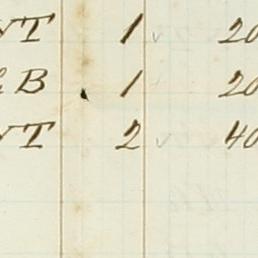 WT 1 ✓ 20
& B 1 20
WT 2 ✓ 40